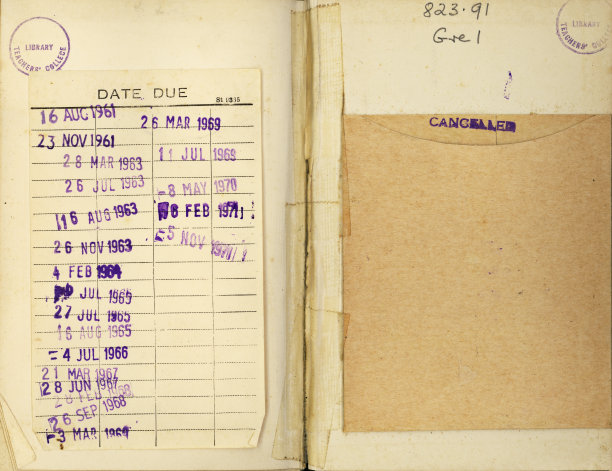 LIBRARY
TEACHERS' COLLEGE
DATE DUE
St 9336
16 AUG 1961
23 NOV 1961
28 MAR 1963
26 JUL 1963
16 AUG 1963
26 NOV 1963
4 FEB 1964
JUL 1965
27 JUL 1965
16 AUG 1965
-4 JUL 1966
21 MAR 1967
28 JUN 1967
28 FEB 1968
26 SEP 1968
-3 MAR 1969
26 MAR 1969
11 JUL 1969
-8 MAY 1970
8 FEB 1971
-5 NOV
823.91
Gre 1
LIBRARY
TEACHERS' COLLEGE
CANCELLED